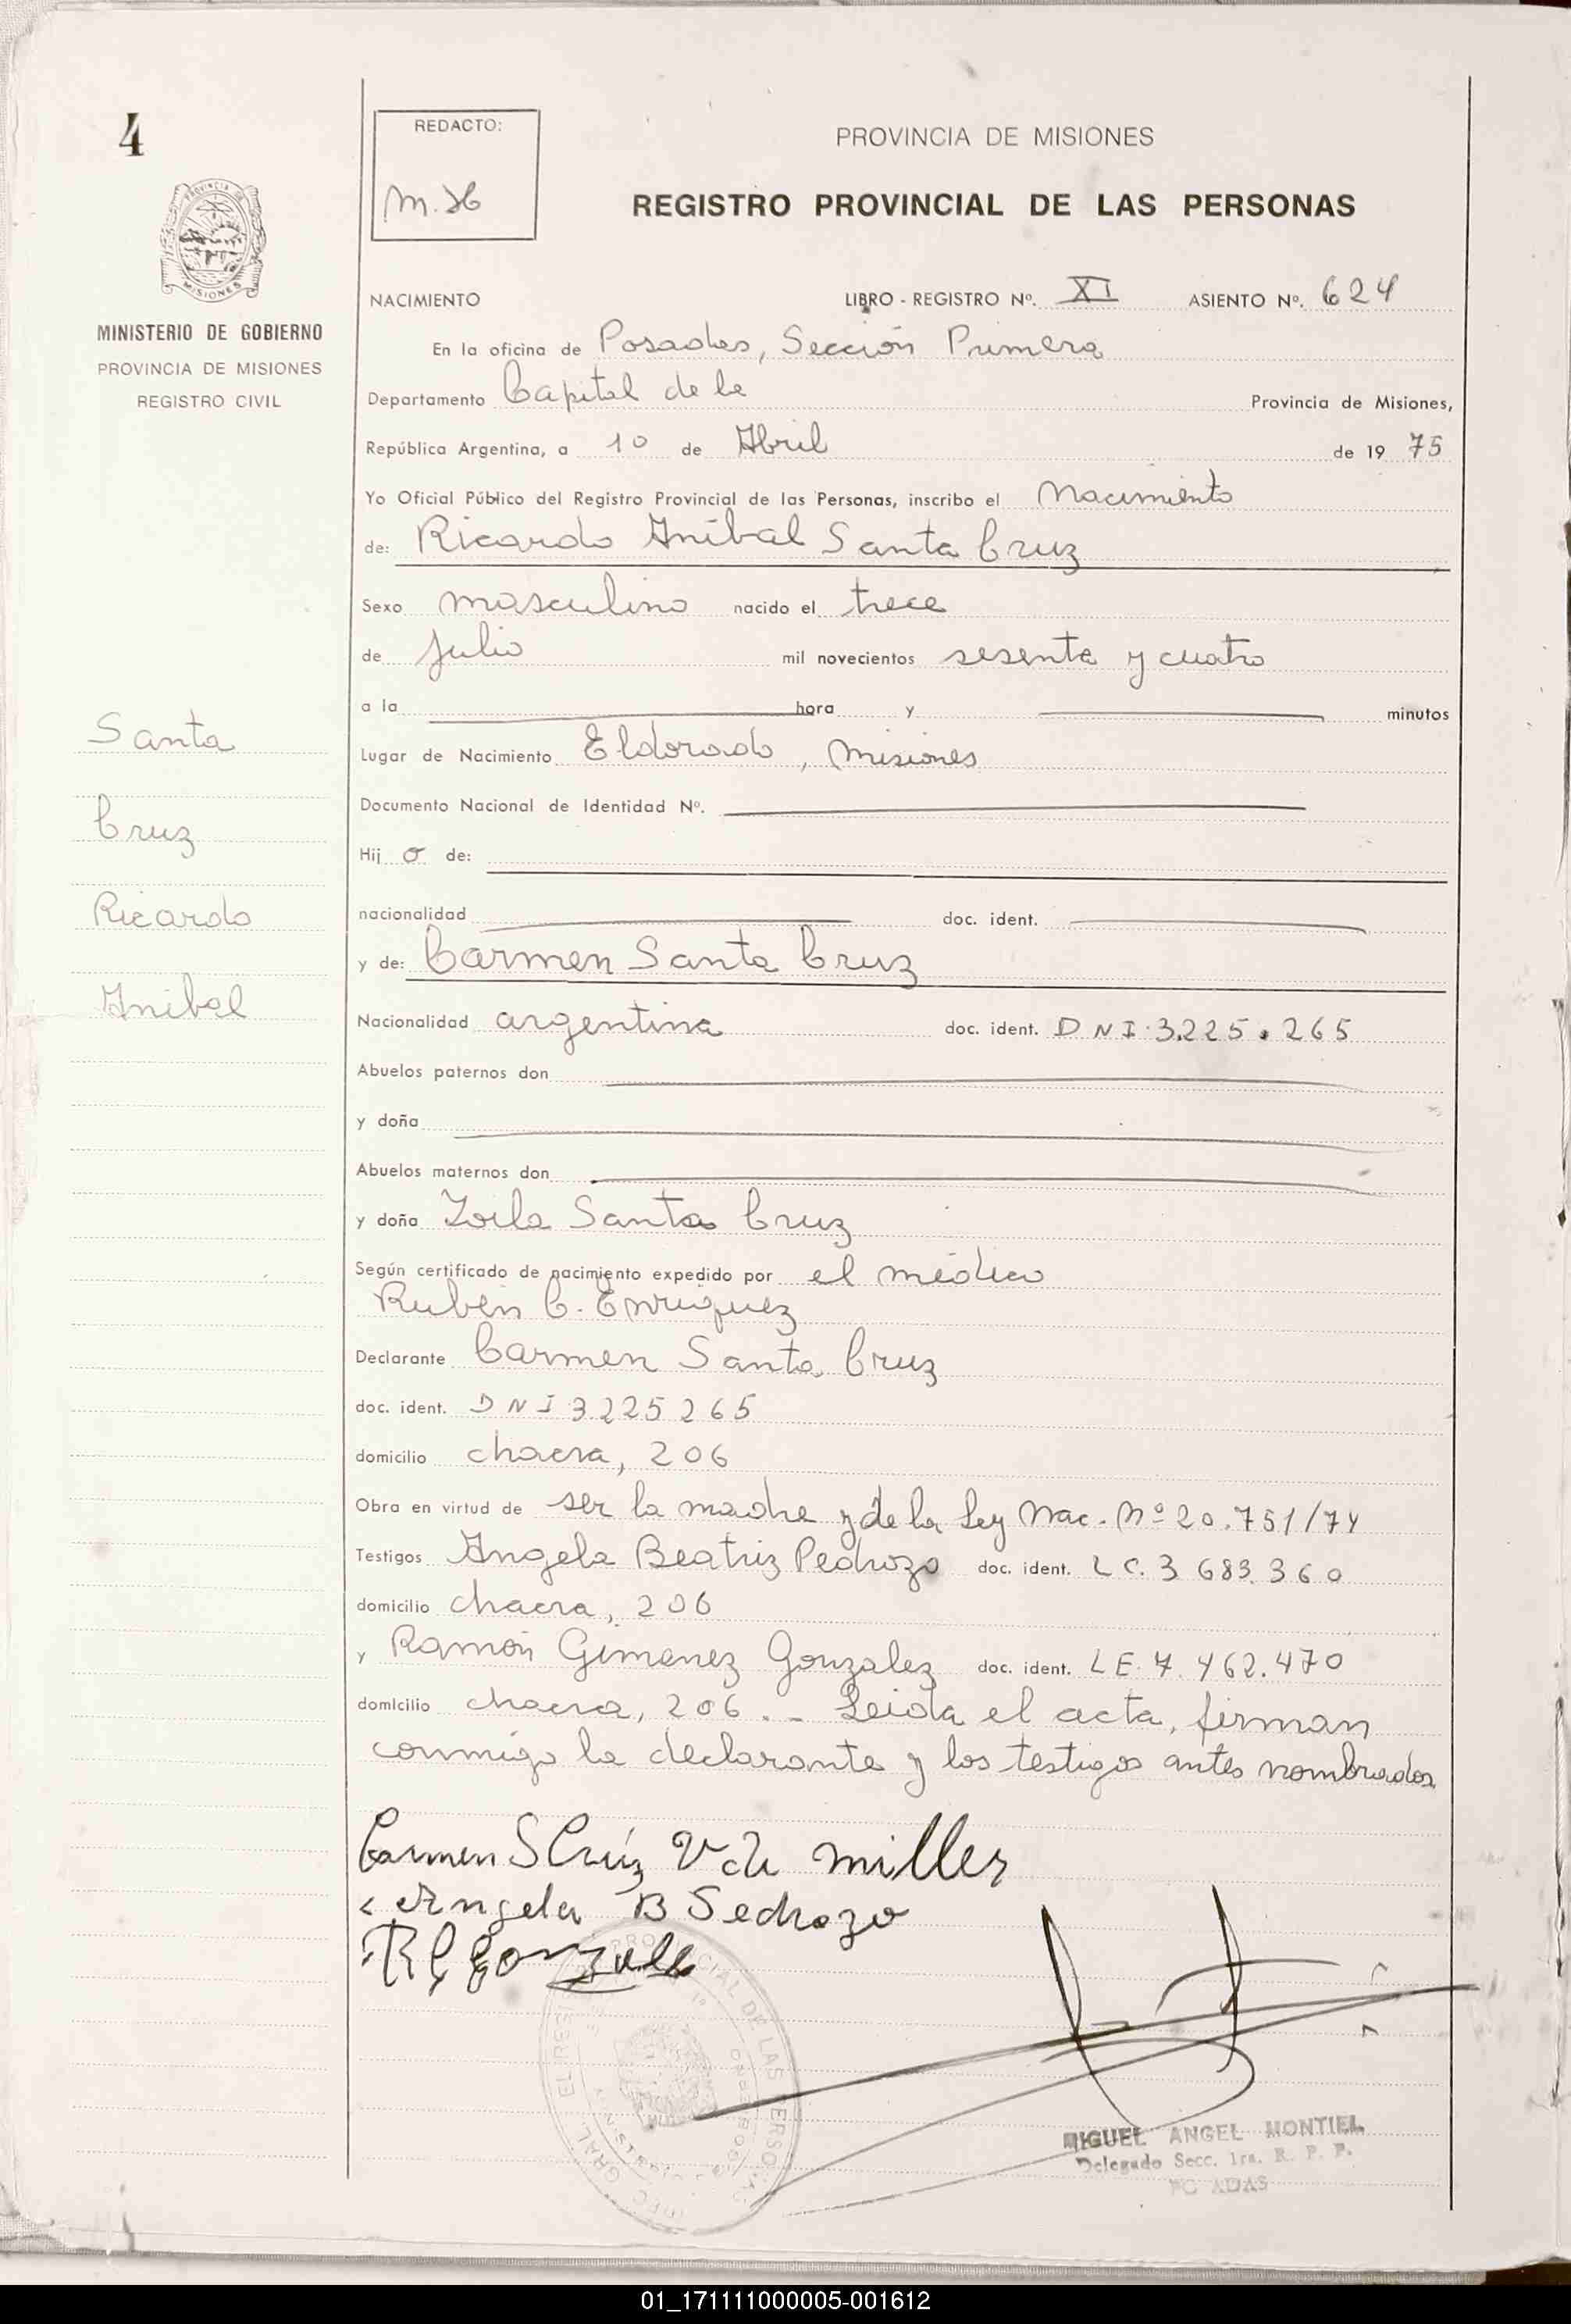 4
REDACTO:
PROVINCIA DE MISIONES
REGISTRO PROVINCIAL DE LAS PERSONAS
MISIONES
MINISTERIO DE GOBIERNO
PROVINCIA DE MISIONES
REGISTRO CIVIL
NACIMIENTO LIBRO - REGISTRO Nº. XI ASIENTO Nº. 624
En la oficina de Posadas, Sección Primera
Departamento Capital de la Provincia de Misiones,
República Argentina, a 10 de Abril de 19 75
Yo Oficial Público del Registro Provincial de las Personas, inscribo el Nacimiento
de: Ricardo Aníbal Santa Cruz
Sexo masculino nacido el trece
de Julio mil novecientos sesenta y cuatro
a la hora y minutos
Santa
Lugar de Nacimiento Eldorado, Misiones
Documento Nacional de Identidad Nº.
Cruz
Hij o de:
Ricardo
nacionalidad doc. ident.
y de: Carmen Santa Cruz
Anibal
Nacionalidad argentina doc. ident. DNI 3.225.265
Abuelos paternos don
y doña
Abuelos maternos don
y doña Zoila Santa Cruz
Según certificado de nacimiento expedido por el médico
Rubén C. Enriquez
Declarante Carmen Santa Cruz
doc. ident. DNI 3.225 265
domicilio chacra, 206
Obra en virtud de ser la madre y de la Ley Nac. Nº 20.751/74
Testigos Angela Beatriz Pedrozo doc. ident. LC. 3 683.360
domicilio chacra, 206
y Ramón Gimenez Gonzalez doc. ident. LE. 7.462.470
domicilio chacra, 206.- Leida el acta, firman
conmigo la declarante y los testigos antes nombrados
Carmen S Cruz V de Miller
Angela B Pedrozo
MIGUEL ANGEL MONTIEL
Delegado Secc. 1ra. R. P. P.
POSADAS
01_171111000005-001612